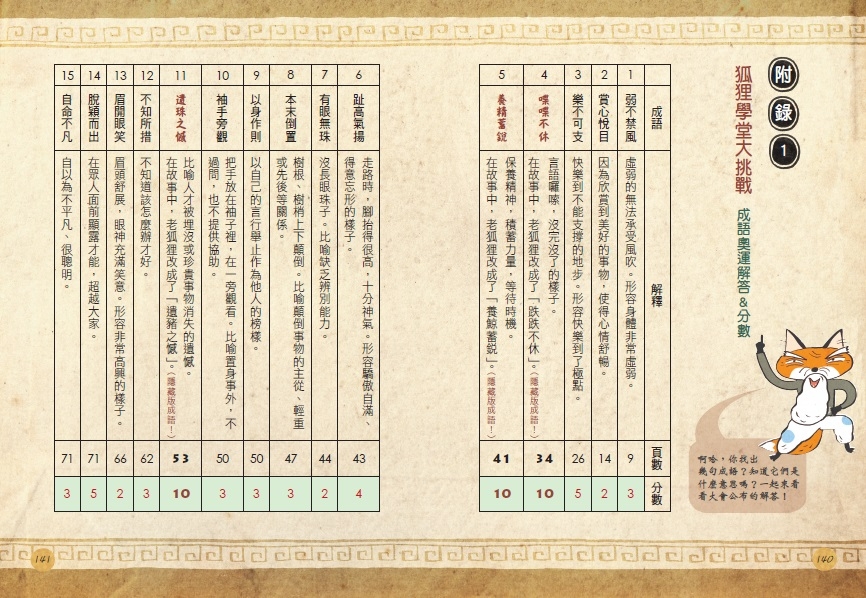 附錄1
狐狸學堂大挑戰
成語奧運解答&分數
啊哈，你找出
幾句成語？知道它們是
什麼意思嗎？一起來看
看大會公布的解答！
成語
解釋
頁數
分數
1
弱不禁風
虛弱的無法承受風吹。形容身體非常虛弱。
9
3
2
賞心悅目
因為欣賞到美好的事物，使得心情舒暢。
14
2
3
樂不可支
快樂到不能支撐的地步。形容快樂到了極點。
26
5
4
喋喋不休
言語囉嗦，沒完沒了的樣子。
在故事中，老狐狸改成了「跌跌不休」。（隱藏版成語！）
34
10
5
養精蓄銳
保養精神，積蓄力量，等待時機。
在故事中，老狐狸改成了「養鯨蓄銳」。（隱藏版成語！）
41
10
6
趾高氣揚
走路時，腳抬得很高，十分神氣。形容驕傲自滿、
得意忘形的樣子。
43
4
7
有眼無珠
沒長眼珠子。比喻缺乏辨別能力。
44
2
8
本末倒置
樹根、樹梢上下顛倒。比喻顛倒事物的主從、輕重
或先後等關係。
47
3
9
以身作則
以自己的言行舉止作為他人的榜樣。
50
3
10
袖手旁觀
把手放在袖子裡，在一旁觀看。比喻置身事外，不
過問，也不提供協助。
50
3
11
遺珠之憾
比喻人才被埋沒或珍貴事物消失的遺憾。
在故事中，老狐狸改成了「遺豬之憾」。（隱藏版成語！）
53
10
12
不知所措
不知道該怎麼辦才好。
62
3
13
眉開眼笑
眉頭舒展，眼神充滿笑意。形容非常高興的樣子。
66
2
14
脫穎而出
在眾人面前顯露才能，超越大家。
71
5
15
自命不凡
自以為不平凡、很聰明。
71
3
140
141